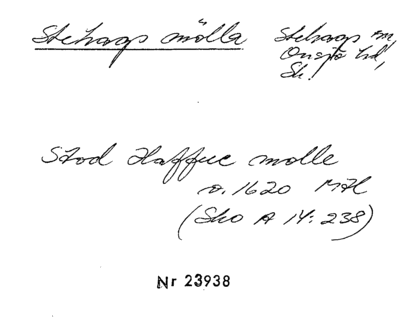 Stehags mölla Stehags sn,
Onsjö hd,
Sk.
Stod Haffue molle
o. 1620 MH
(Sko A 14: 238)
Nr 23938